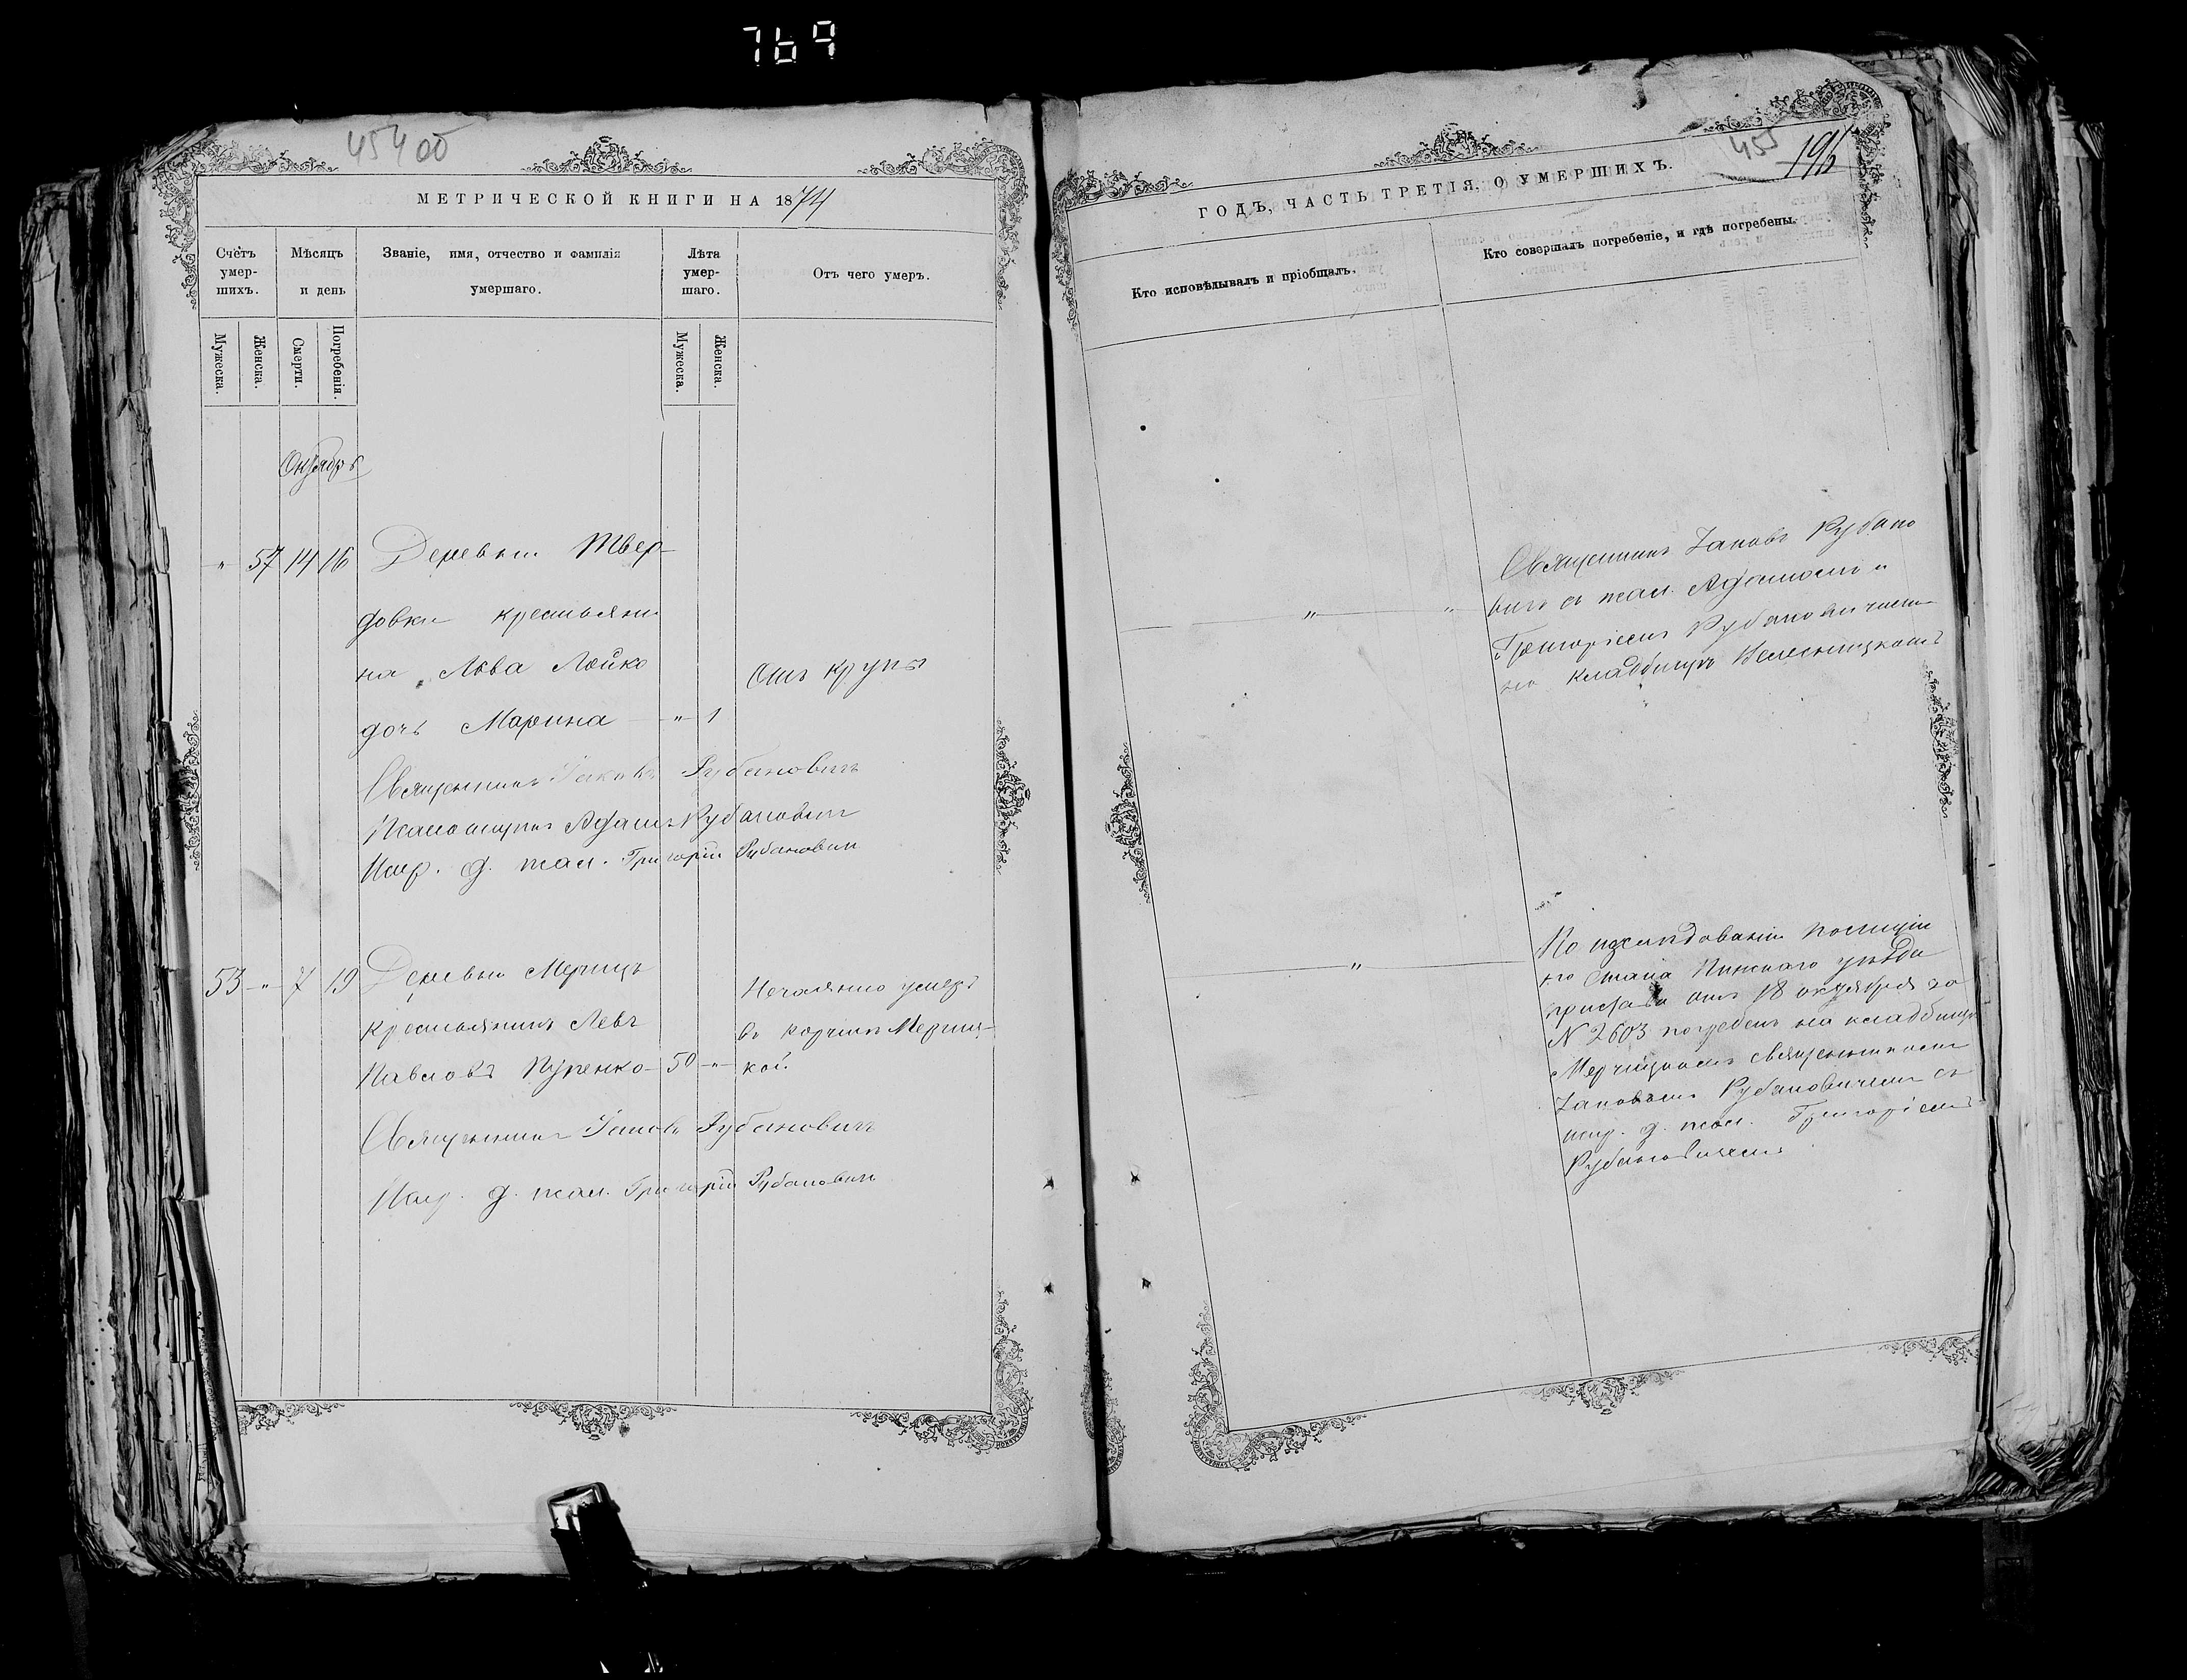 769
45400
МЕТРИЧЕСКОЙ КНИГИ НА 1874
Счетъ умершихъ.
Мѣсяцъ и день
Званіе, имя, отчество и фамилія умершаго.
Лѣта умершаго.
Отъ чего умеръ.
Мужеска.
Женска.
Смерти.
Погребенія.
Мужеска.
Женска.
Октябрь
" 57 14 16 Деревни Твер-
довки крестьяни
на Льва Лойко
дочь Марина " 1
Отъ крупы
Священникъ Іаковъ Рубановичъ
Псаломщикъ Адамъ Рубановичъ
Д. псал. Григорій Рубановичъ
53 " 7 19 Деревни Мерчицъ
крестьянинъ Левъ
Павловъ Купенко 50 "
Нечаянно умеръ
въ корчмѣ Мерчиц-
кой.
Священникъ Іаковъ Рубановичъ
д. псал. Григорій Рубановичъ
455
196
ГОДЪ, ЧАСТЬ ТРЕТІЯ, О УМЕРШИХЪ.
Кто исповѣдывалъ и пріобщалъ.
Кто совершалъ погребеніе, и гдѣ погребены.
" "
Священникъ Іаковъ Рубано
вичъ съ псал. Адамомъ и
Григоріемъ Рубановичами
на кладбищѣ
"
По изслѣдованіи полиціи
стана Пинскаго уѣзда
пристава отъ 18 октября за
N 2603 погребенъ на кладбищѣ
Мерчицкомъ священникомъ
Іаковомъ Рубановичемъ съ
д. псал. Григоріемъ
Рубановичемъ